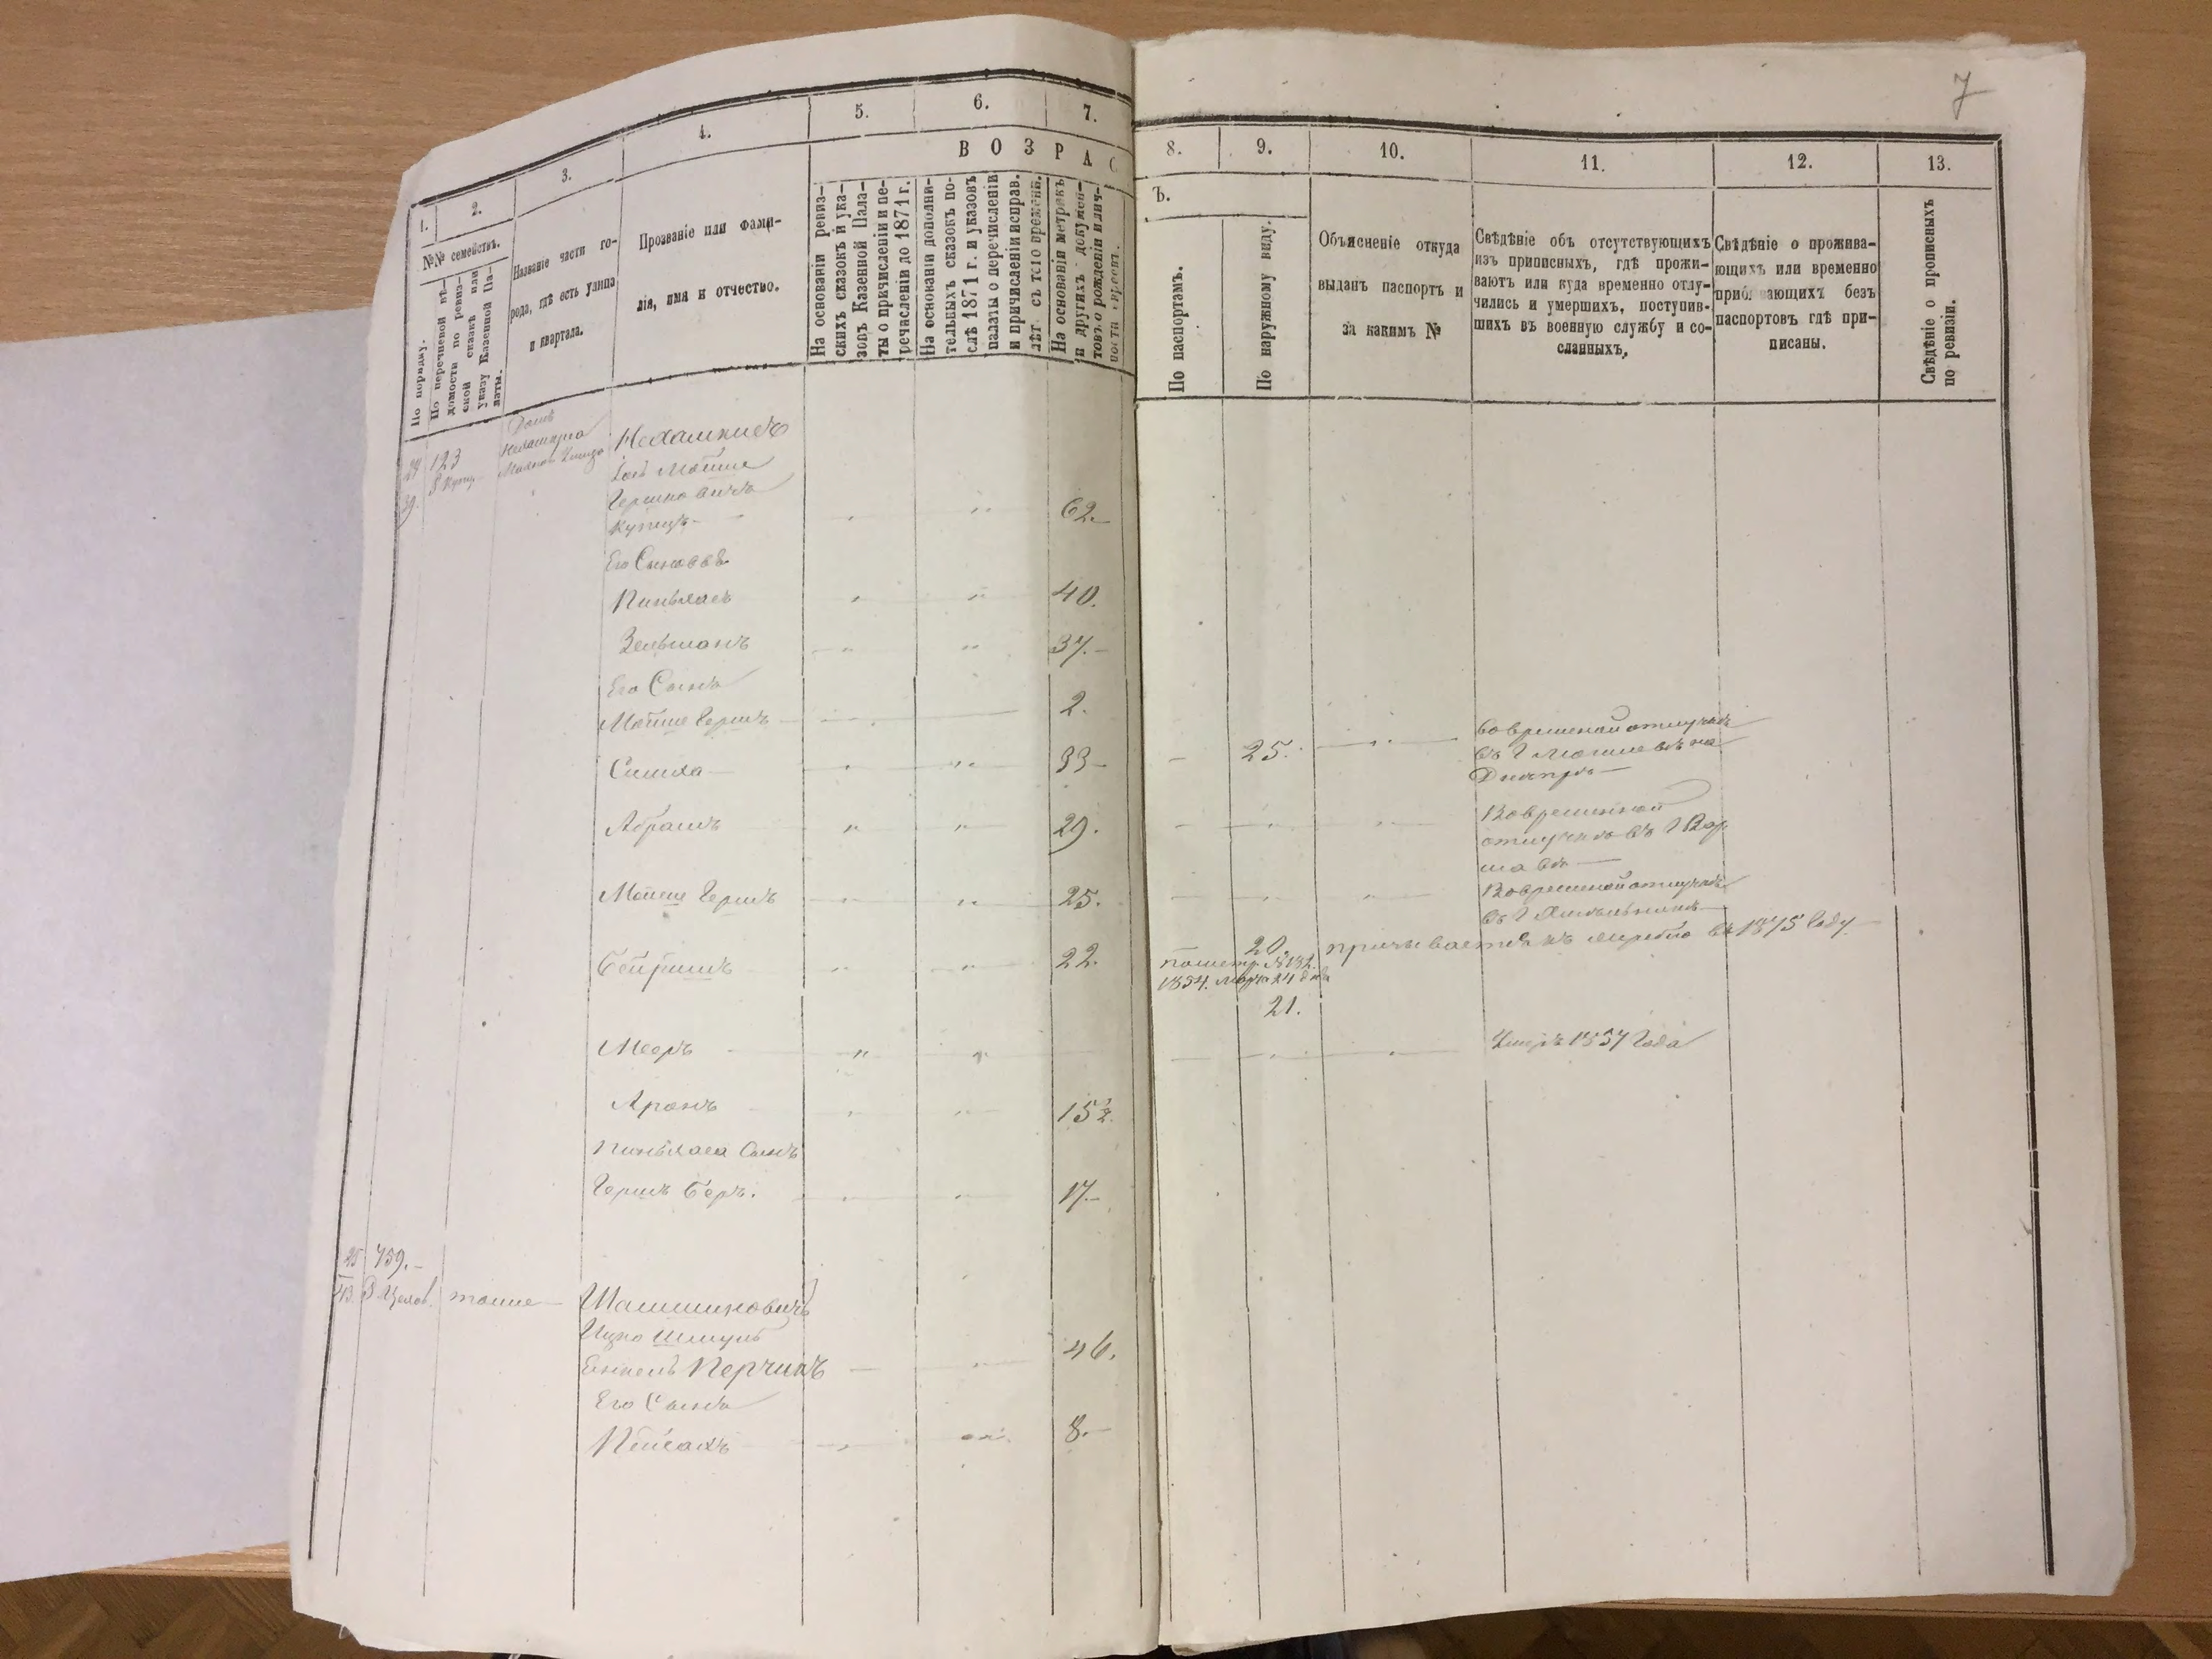 7
1.
2.
3.
4.
5.
6.
7.
8.
9.
10.
11.
12.
13.
№№ семействъ.
По порядку.
По перечневой вѣ-
домости по ревиз-
ской сказкѣ или
указу Казенной Па-
латы.
Названіе части го-
рода, гдѣ есть улица
и квартала.
Прозваніе или фами-
лія, имя и отчество.
ВОЗРАС
Ъ.
На основаніи ревиз-
скихъ сказокъ и ука-
зовъ Казенной Пала-
ты о причисленіи и пе-
речисленіи до 1871 г.
На основаніи дополни-
тельныхъ сказокъ по-
слѣ 1871 г. и указовъ
палаты о перечисленіи
и причисленіи исправ.
лѣт съ того времени.
На основаніи метрикъ
и другихъ докумен-
товъ о рожденіи и лич-
ности евреевъ.
По паспортамъ.
По наружному виду.
Объясненіе откуда
выданъ паспортъ и
за какимъ №
Свѣдѣніе объ отсутствующихъ
изъ приписныхъ, гдѣ прожи-
ваютъ или куда временно отлу-
чились и умершихъ, поступив-
шихъ въ военную службу и со-
сланныхъ,
Свѣдѣніе о прожива-
ющихъ или временно
приб ающихъ безъ
паспортовъ гдѣ при-
писаны.
Свѣдѣніе о прописныхъ
по ревизіи.
24 123 Домъ Нехамкисъ
Мойше
Гершковичъ
купецъ 62.
Его Сыновья
Пинхасъ 40.
Зельманъ 37.
Его Сынъ
Мойше Гершъ 2.
Симха 33 25. Во временной отлучкѣ
въ г Могилевѣ на
Днепрѣ
Абрамъ 29. Во временной
отлучкѣ въ г Вар
шавѣ
Мойше Гершъ 25. Во временной отлучкѣ
въ г
Бейришъ 22. 20. призывается къ жребію въ 1875 Году.
по метр. № 132.
1854. марта 24 дня
21.
Мееръ Умеръ 1857 Года
Аронъ 15½.
Пинхаса Сынъ
Гершъ Беръ. 17.
25 759.
тоже Шамшиновичъ
Ицко Шмуль
Перчикъ 46.
Его Сынъ
Пейсахъ 8.